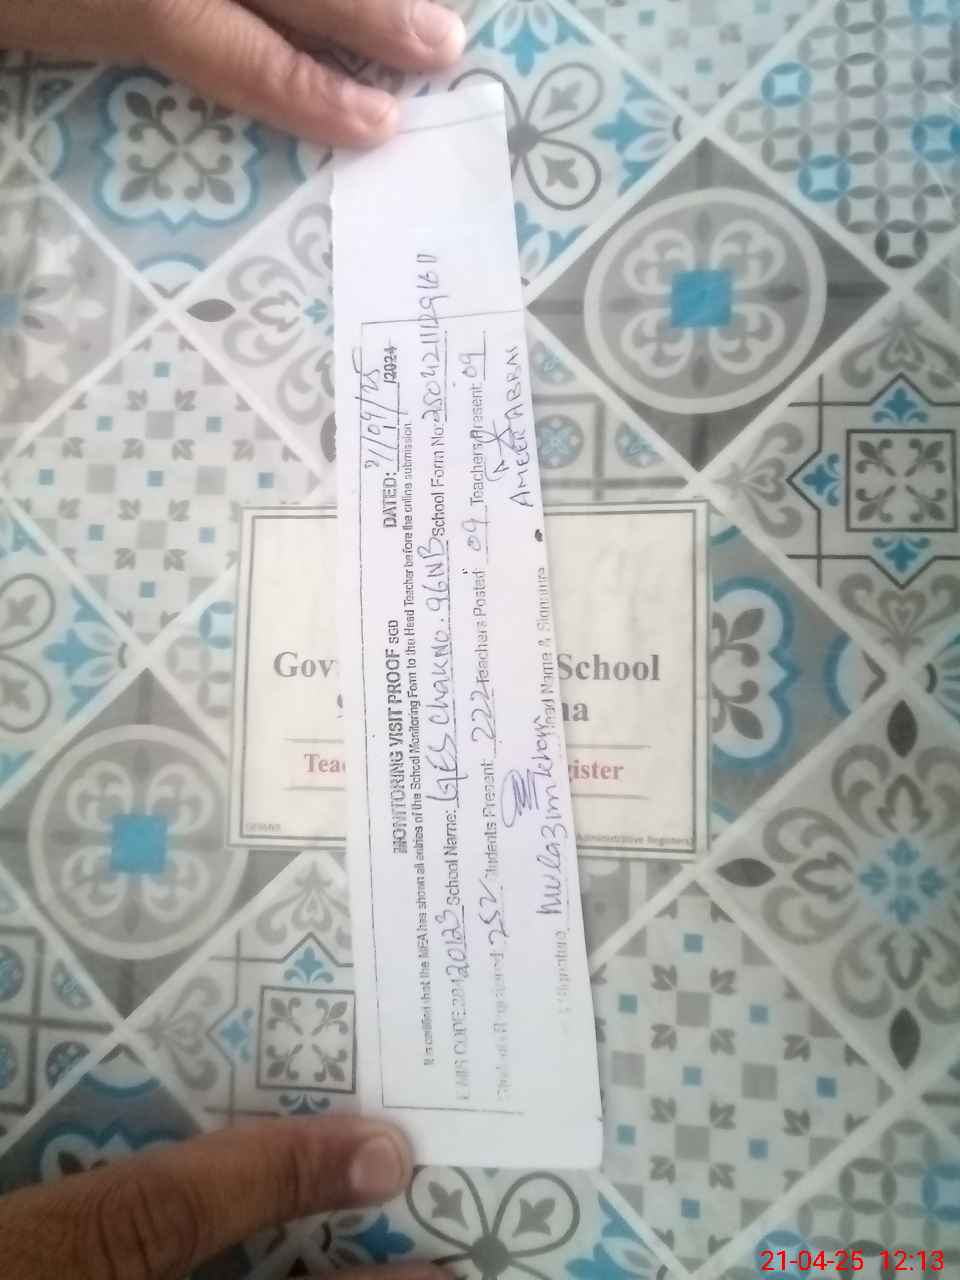 MONITORING VISIT PROOF SGD DATED: 21/04/25 /2024
It is certified that the MEA has shown all entries of the School Monitoring Form to the Head Teacher before the online submission.
EMIS CODE:38420123 School Name: GES Chak No. 96NB School Form No: 25042111291611
Students Registered: 252 Students Present: 222 Teachers Posted: 09 Teachers Present: 09
Signature Mulazim Head Name & Signature AMEER ABBAS
Gov School
Tea ister
Administrative Registers
21-04-25 12:13